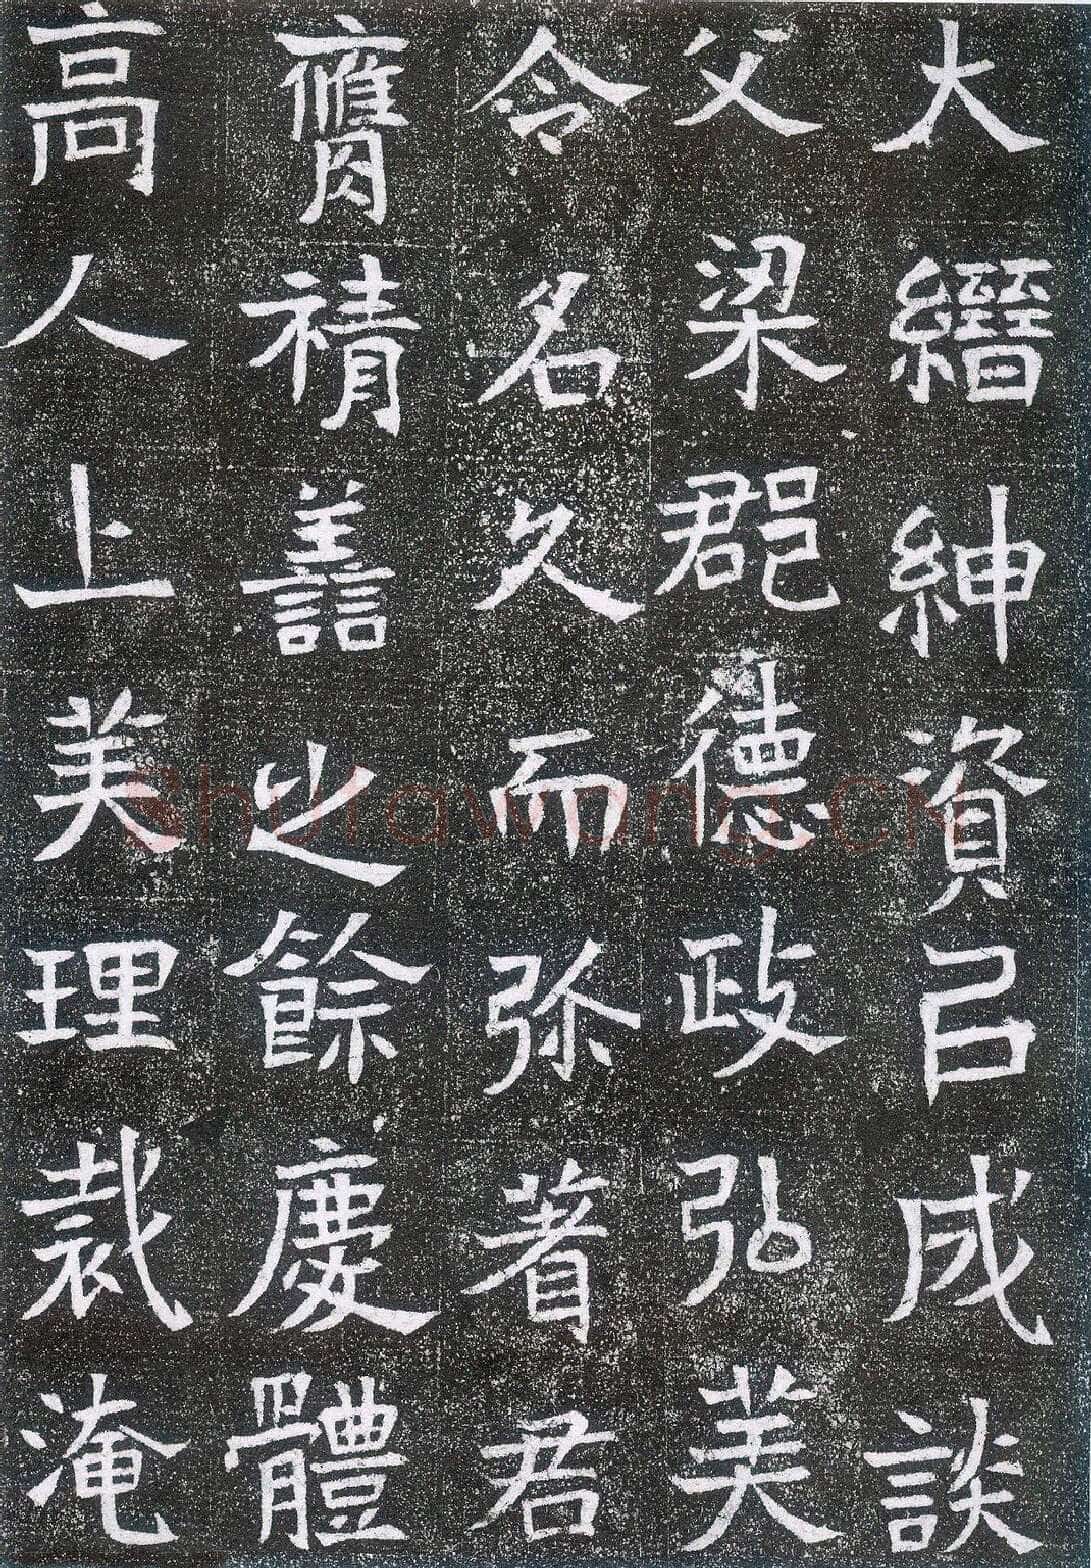 大縉紳資以成談
父梁郡德政弘美
令名久而弥著君
膺積譱之餘慶體
高人上美理裁淹
Shufawang.CN